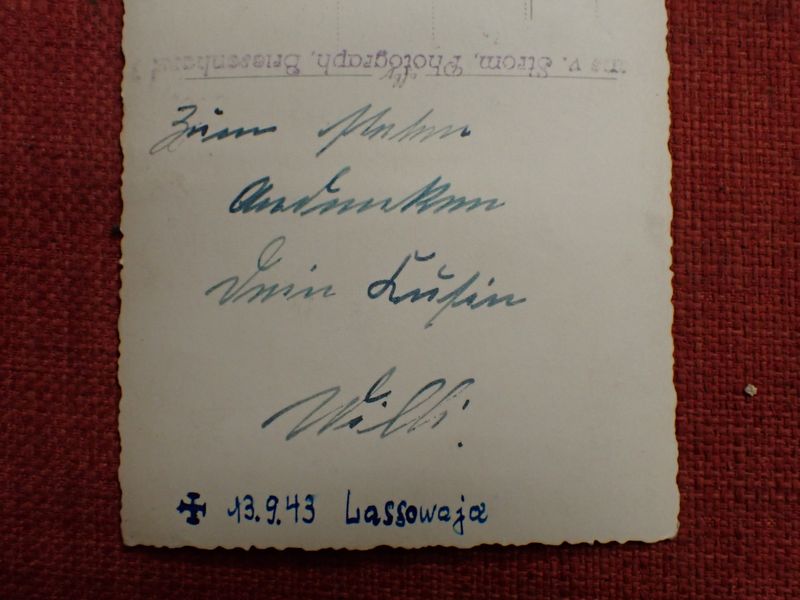 v. Strom, Photograph, Driesenhaus
Zum steten
Andenken
Dein Kusin
Willi.
13.9.43 Lassowaja